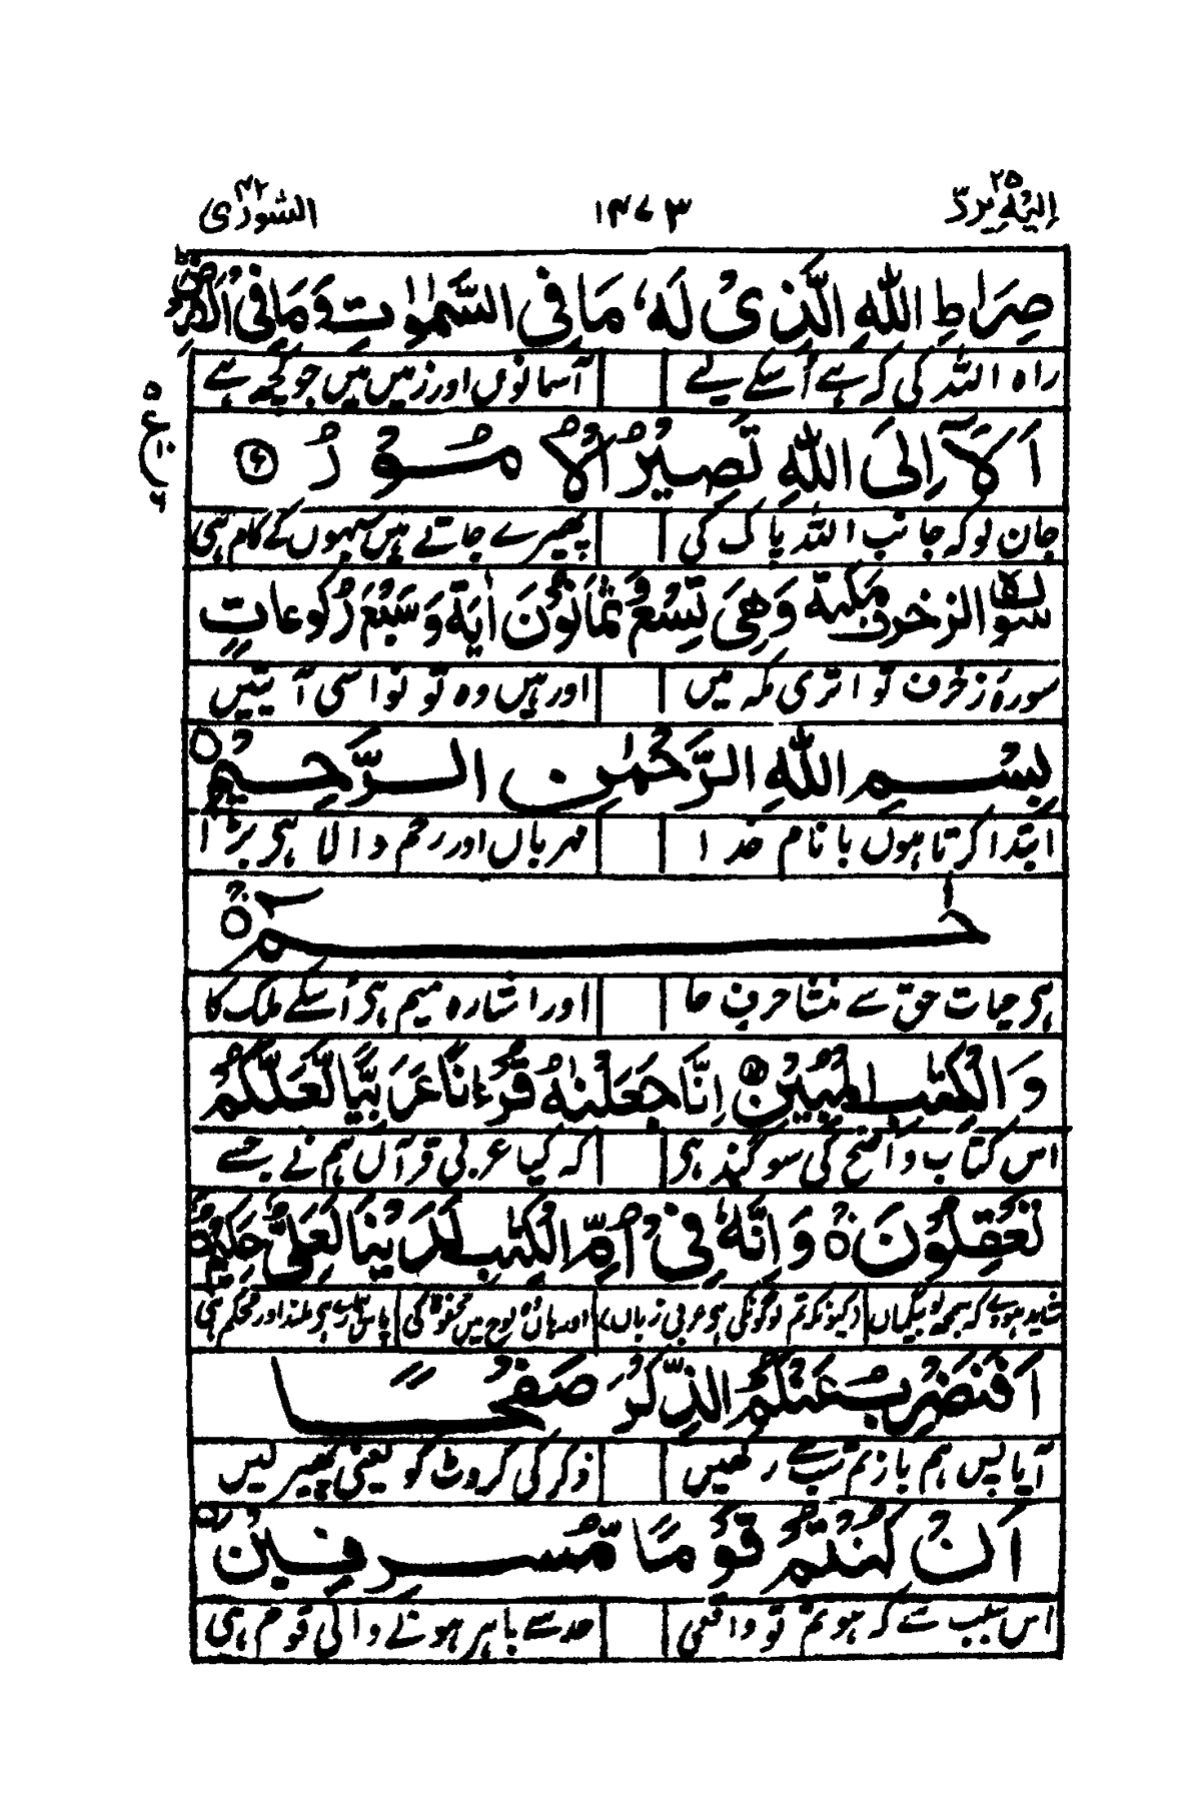 الیه یردّ ۲۵
۱۴۷۳
الشورٰی ۴۲
صِرَاطِ اللّٰهِ الَّذِیْ لَهٗ مَا فِی السَّمٰوٰتِ وَمَا فِی الْاَرْضِ
راہ اللہ کی کہ ہے اُسکے لیے آسمانوں اور زمیں میں جو کچھ ہے
اَلَاۤ اِلَی اللّٰهِ تَصِیْرُ الْاُمُوْرُ
جان لو کہ جانب اللہ پاک کی پھیرے جاتے ہیں سبہوں کے کام ہی
سورة الزخرف مکیة وَهِیَ تِسْعٌ ثَمَانُوْنَ اٰیَةً وَسَبْعُ رُکُوعَاتٍ
سورہٗ زخرف تو اتری مکہ میں اور ہیں وہ تو نواسی آیتیں
بِسْمِ اللّٰهِ الرَّحْمٰنِ الرَّحِیْمِ
ابتدا کرتا ہوں با نام خدا مہرباں اور رحم والا ہی بڑا
حٰمۤ
ہی حیات حق سے منشا حرف حا اور اشارہ میم ہی اُسکے ملک کا
وَالْکِتٰبِ الْمُبِیْنِ اِنَّا جَعَلْنٰهُ قُرْءٰنًا عَرَبِیًّا لَّعَلَّکُمْ
اس کتاب واضح کی سوگند ہی کہ کیا عربی قرآں ہم نے جسے
تَعْقِلُوْنَ وَاِنَّهٗ فِیْ اُمِّ الْکِتٰبِ لَدَیْنَا لَعَلِیٌّ حَکِیْمٌ
شاید ہووے کہ سمجھ لو بیگماں (کیونکہ تم لوگونکی ہی عربی زباں) اور ہاں وہ لوح میں محفوظ کی پاس ہی بلند اور محکم ہی
اَفَنَضْرِبُ عَنْکُمُ الذِّکْرَ صَفْحًا
آیا پس ہم باز تم سب سے رکھیں ذکر کی کروٹ کو یعنی پھیر لیں
اَنْ کُنْتُمْ قَوْمًا مُّسْرِفِیْنَ
اس سبب سے کہ ہو تم تو واقعی حد سے باہر ہونے والی قوم ہی